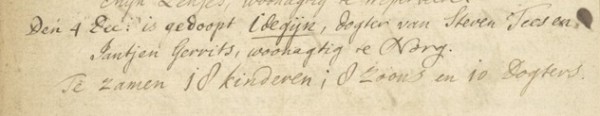 Lenses, woonagtig te
Den 4 Dec: is gedoopt Idegijn, dogter van Steven Tees en
Jantjen Gerrits, woonagtig te Norg.
Te zamen 18 kinderen; 8 Zoons en 10 Dogters.